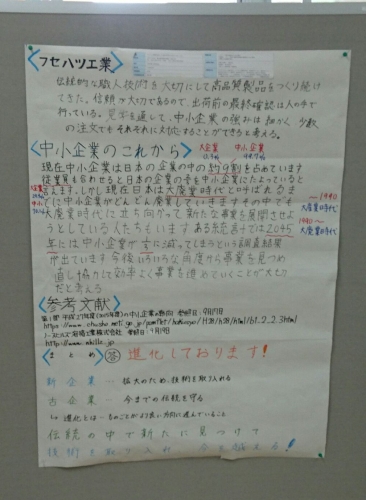 <フセハツ工業>
伝統的な職人技術を大切にして高品質製品をつくり続け
てきた。信頼が大切であるので、出荷前の最終確認は人の手で
行っている。見学を通して、中小企業の強みは細かく、少数
の注文でもそれぞれに対応することができると考える。
<中小企業のこれから>
大企業
中小企業
現在中小企業は日本の企業の中の約9割を占めています
従業員を合わせると日本の企業の
言えます。しかし現在日本は大廃業時代と呼ばれるま
でに中小企業がどんどん廃業していきますその中でも
大廃業時代に立ち向かって新たな事業を展開させよ
うとしている人たちもいます ある未定言では2045
年には中小企業が
出ています今後はいろいろな角度から事業を見つめ
直し協力して効率よく事業を進めていくことが大切
だと考える
~1990
大産業時代
1990~
大廃業時代
<参考文献>
まとめ
答
進化しております!
新企業 … 拡大のため、技術を取り入れる
古企業 … 今までの伝統を守る
↳ 進化とは…ものごとがより良い方向に進んでいること
伝統の中で新たに見つけて
技術を取り入れ 今を越える!